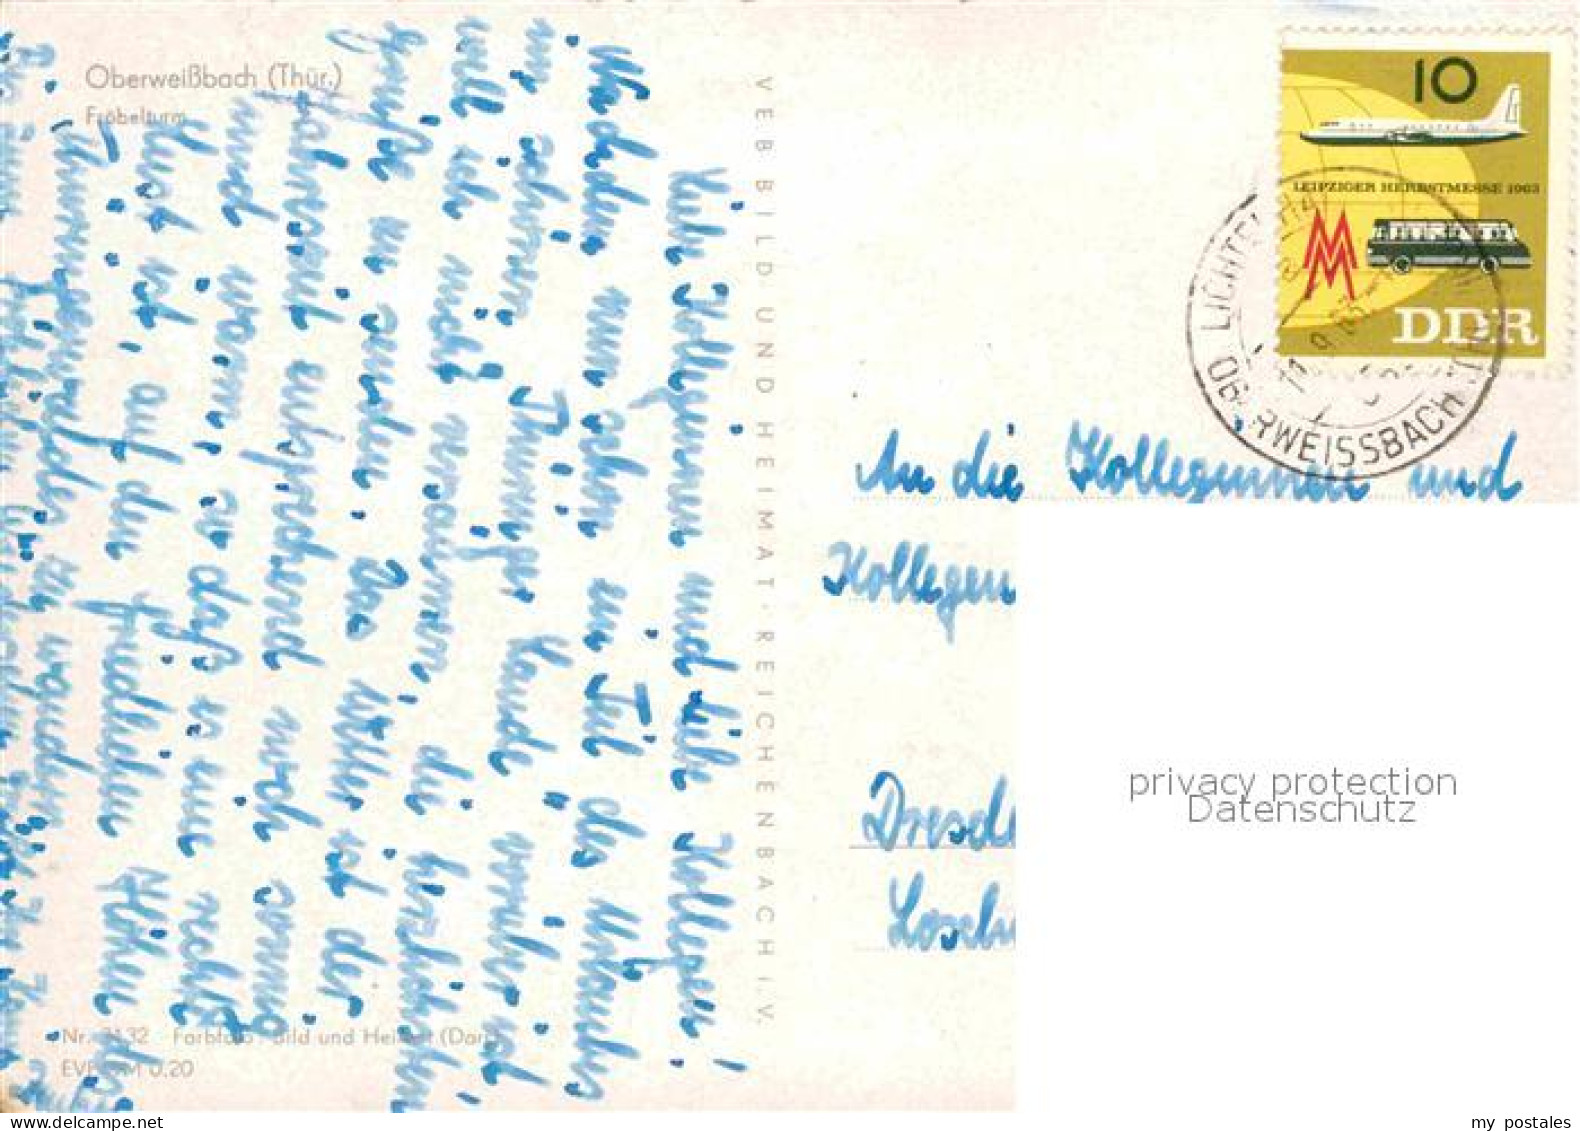 Oberweißbach (Thür.)
Fröbelturm
Liebe Kolleginnen und liebe Kollegen!
Nachdem nun schon ein Teil des Urlaubes
im schönen Thüringer Lande vorüber ist
will ich nicht versäumen, die herzlichsten
Grüße zu senden. Das Wetter ist der
Jahreszeit entsprechend noch sonnig
und warm, so daß es eine rechte
Lust ist, auf den friedlichen Höhen des
Thüringerwaldes zu wandern.
VEB BILD UND HEIMAT · REICHENBACH i. V.
Nr. 3132 Farbfoto: Bild und Heimat
EVP DM 0.20
10
LEIPZIGER HERBSTMESSE 1963
MM
DDR
OBERWEISSBACH
An die Kolleginnen und
Kollegen
Dresde
Loschw
privacy protection
Datenschutz
my postales